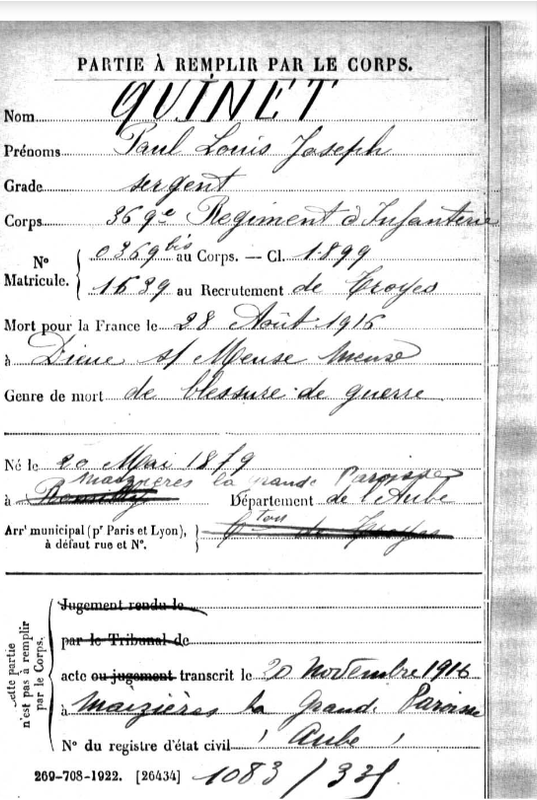 PARTIE À REMPLIR PAR LE CORPS.
Nom QUINET
Prénoms Paul Louis Joseph
Grade sergent
Corps 369e Regiment d'Infanterie
N° Matricule. { 0369bis au Corps. — Cl. 1899
1639 au Recrutement de Troyes
Mort pour la France le 28 Août 1916
à Dieue s/ Meuse Meuse
Genre de mort de blessure de guerre
Né le 20 Mai 1879
Maizières la grande Paroisse
à Département de l'Aube
Arrt municipal (pr Paris et Lyon), à défaut rue et N°. } Cton de Troyes
Cette partie n'est pas à remplir par le Corps. {
Jugement rendu le
par le Tribunal de
acte ou jugement transcrit le 20 Novembre 1916
à Maizières la Grande Paroisse
N° du registre d'état civil ( Aube )
269-708-1922. [26434] 1083 /